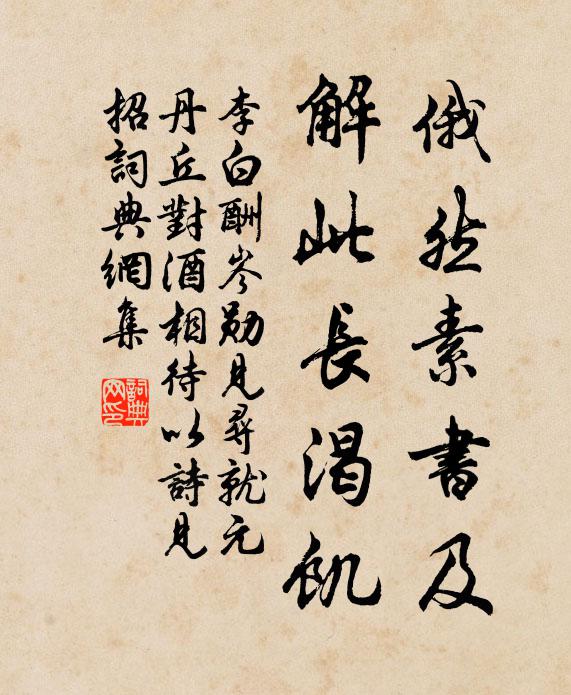 俄然素書及
解此長渴飢
李白酬岑勛見尋就元
丹丘對酒相待以詩見
招詞典網集
詞典
网印